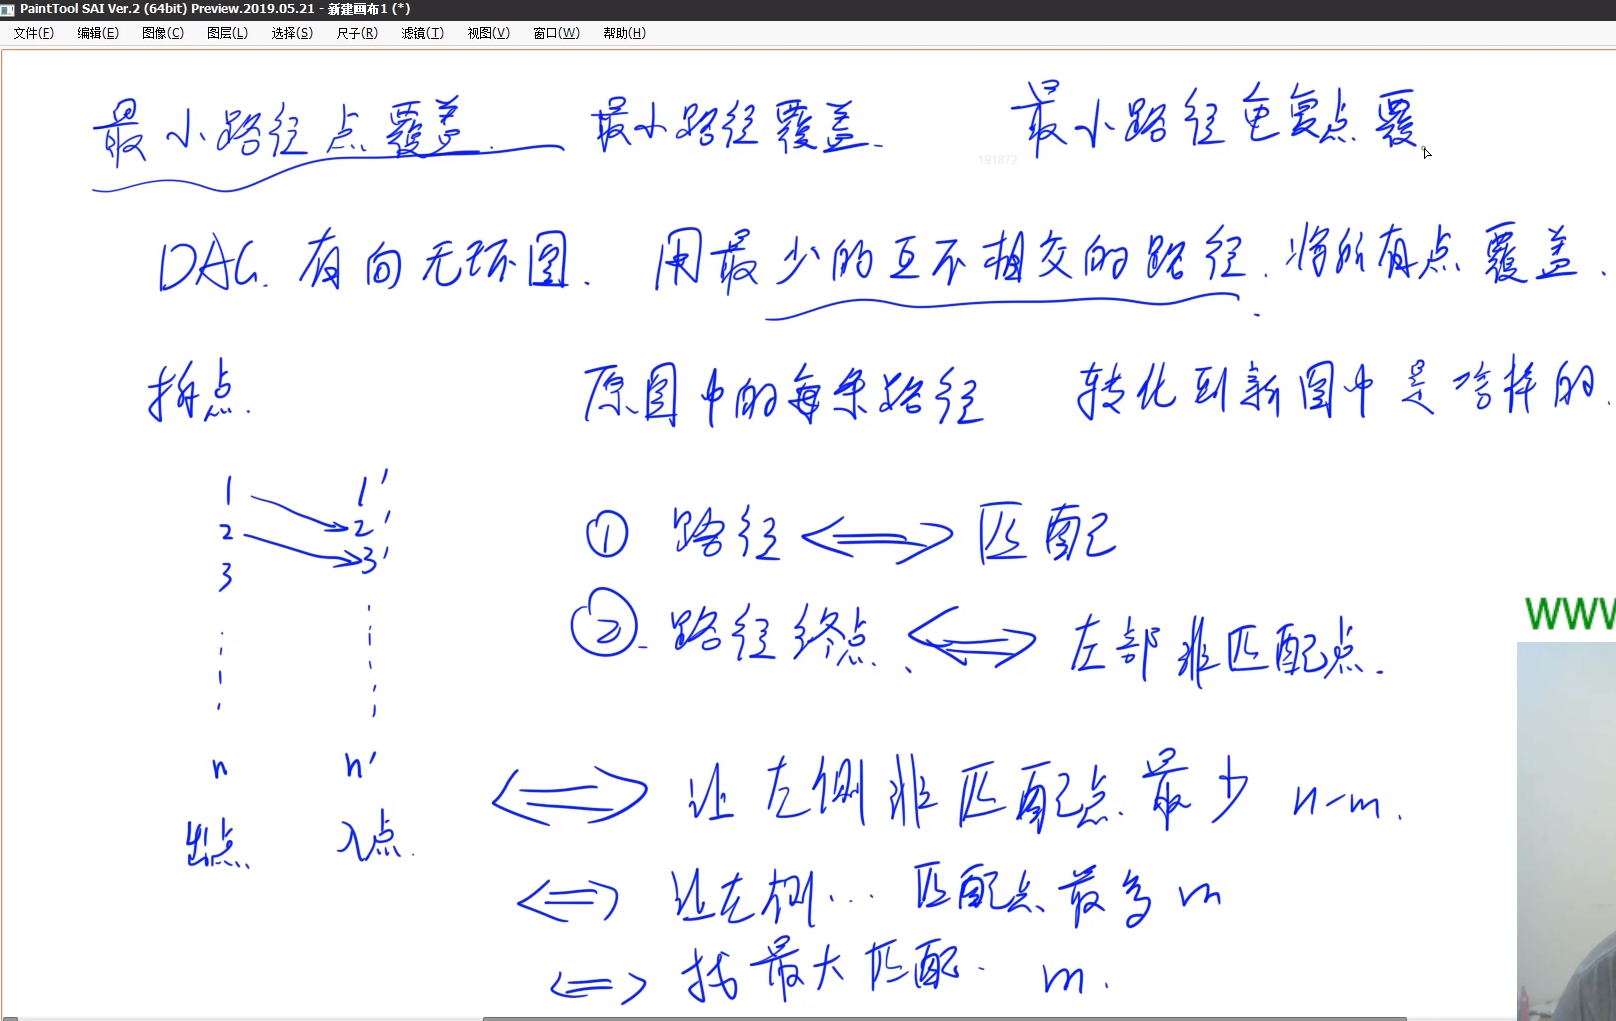 PaintTool SAI Ver.2 (64bit) Preview.2019.05.21 - 新建画布1 (*)
文件(F) 编辑(E) 图像(C) 图层(L) 选择(S) 尺子(R) 滤镜(T) 视图(V) 窗口(W) 帮助(H)
最小路径点覆盖. 最小路径覆盖. 最小路径重复点覆
191872
DAG. 有向无环图. 用最少的互不相交的路径. 将所有点覆盖.
拆点. 原图中的每条路径 转化到新图中是啥样的.
1 1'
2 2'
3 3'
① 路径 <=> 匹配
②. 路径终点. <=> 左部非匹配点.
www
n n'
出点. 入点.
<=> 让左侧非匹配点最少 n-m.
<=> 让左侧... 匹配点最多 m
<=> 找最大匹配. m.